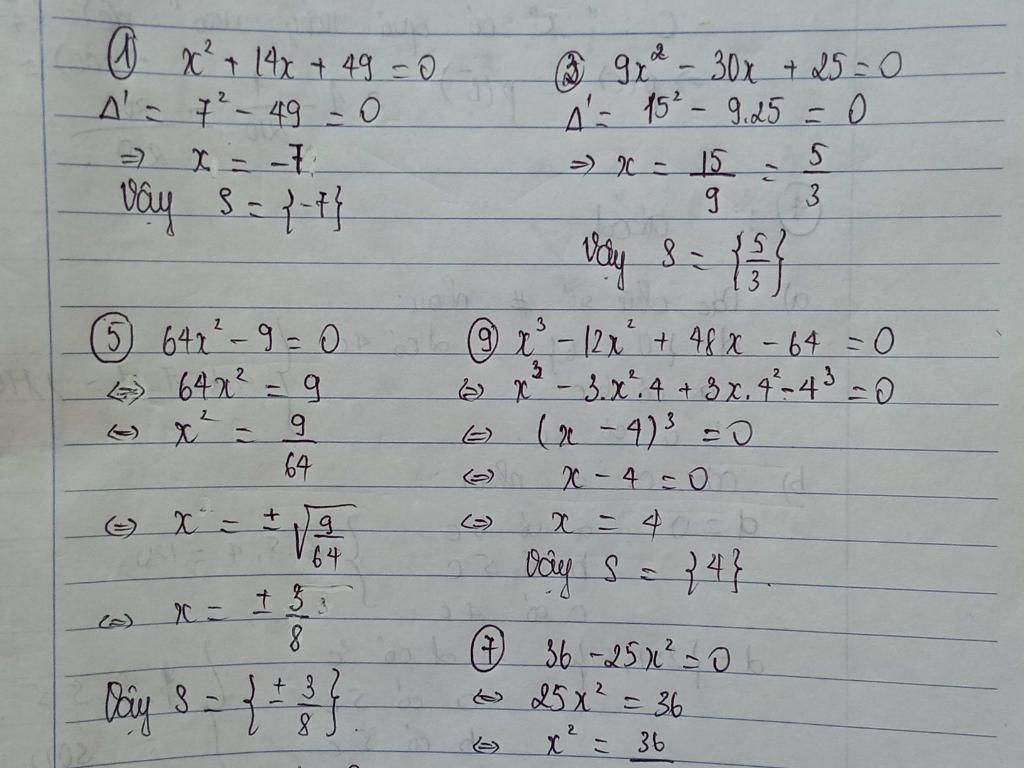 ① x² + 14x + 49 = 0
Δ' = 7² - 49 = 0
⇒ x = -7
Vậy S = {-7}
③ 9x² - 30x + 25 = 0
Δ' = 15² - 9.25 = 0
⇒ x = 15/9 = 5/3
Vậy S = {5/3}
⑤ 64x² - 9 = 0
⇔ 64x² = 9
⇔ x² = 9/64
⇔ x = ±√(9/64)
⇔ x = ± 3/8
Vậy S = {± 3/8}
⑨ x³ - 12x² + 48x - 64 = 0
⇔ x³ - 3.x².4 + 3x.4² - 4³ = 0
⇔ (x - 4)³ = 0
⇔ x - 4 = 0
⇔ x = 4
Vậy S = {4}.
⑦ 36 - 25x² = 0
⇔ 25x² = 36
⇔ x² = 36